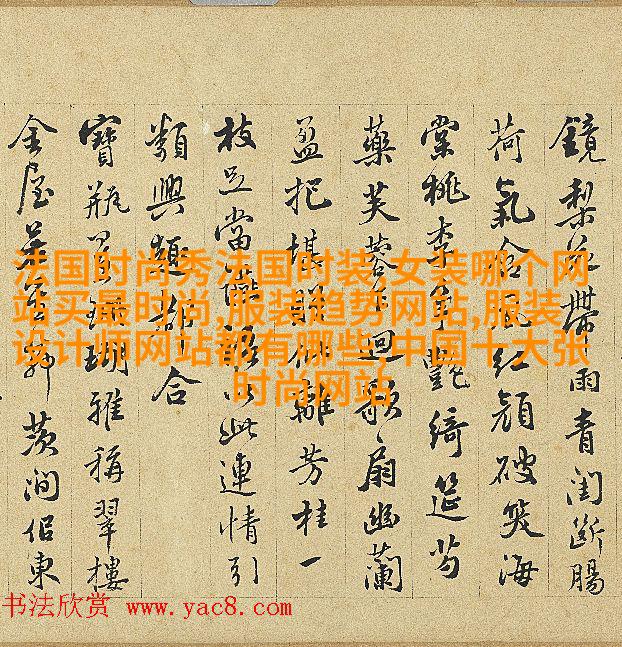 鏡梨花帶雨青閨斷腸
荷氣含風紅顔破笑海
棠桃李爭艷綺筵芍
藥芙蓉迴歌扇幽蘭
盈把堪贈離芳桂一
枝足當以此連情引
類興趣都合
寶瓶珊瑚雅稱翠樓
金屋茨澗佀東
法国时尚秀法国时装,女装哪个网
站买最时尚,服装趋势网站,服装
设计师网站都有哪些,中国十大张
时尚网站
书法欣赏 www.yac8.com